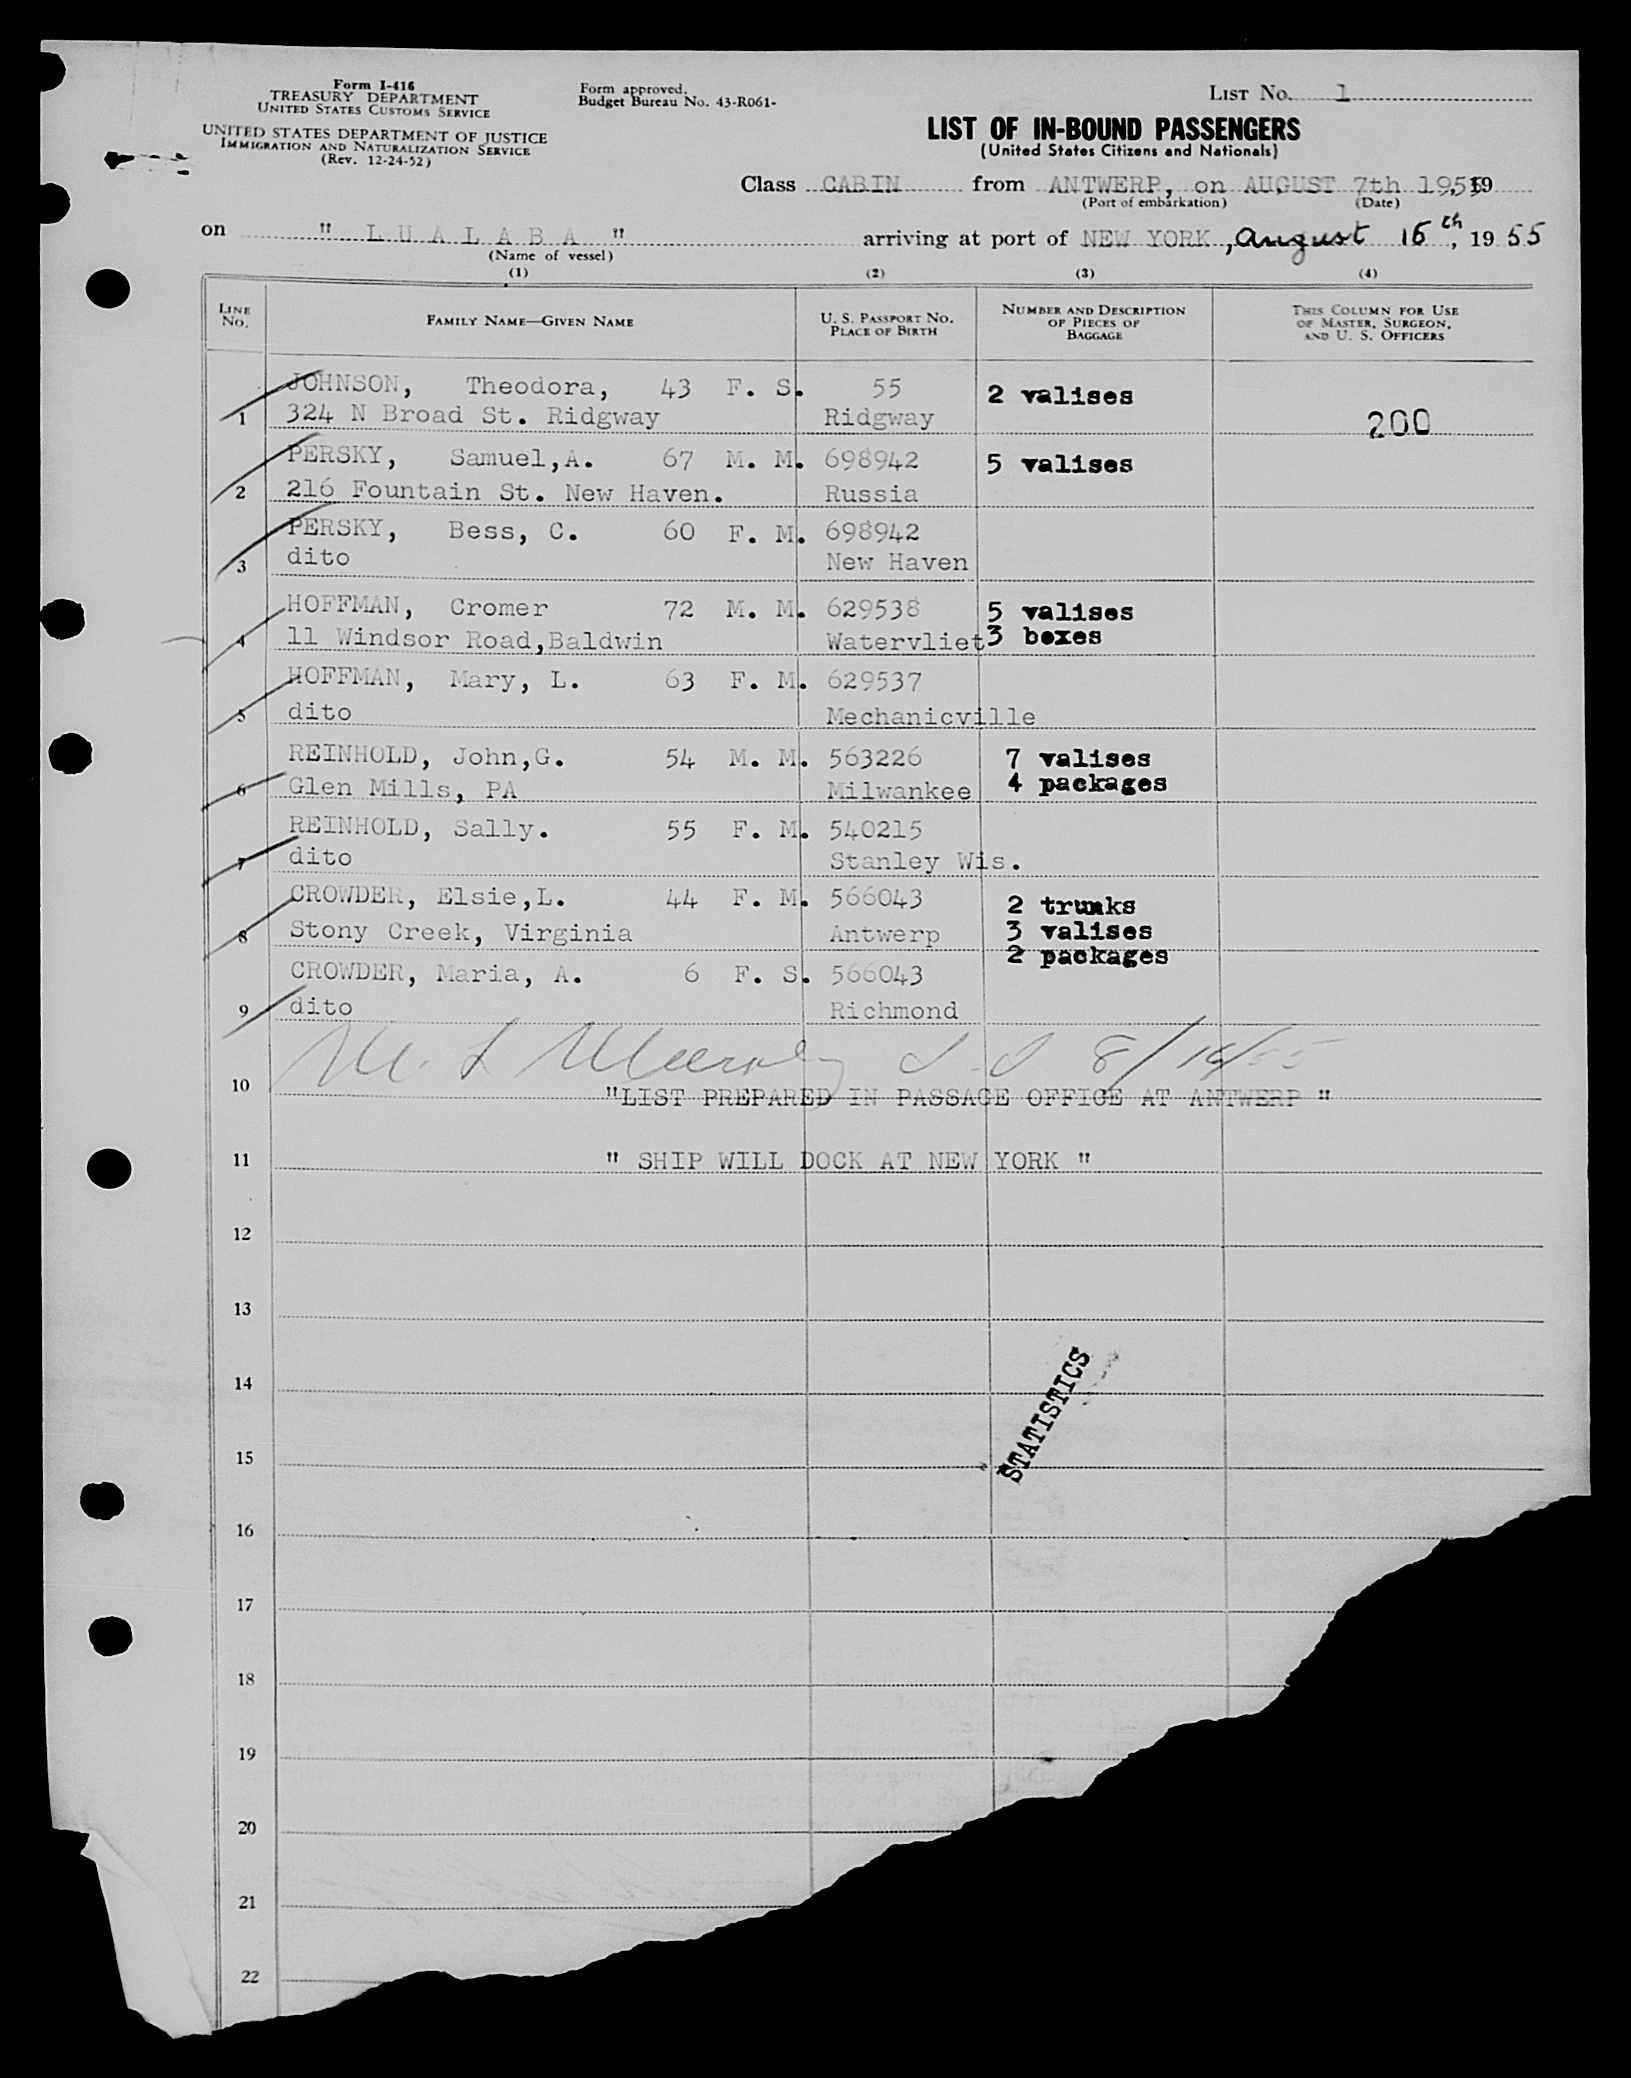 Form I-416
TREASURY DEPARTMENT
UNITED STATES CUSTOMS SERVICE
UNITED STATES DEPARTMENT OF JUSTICE
IMMIGRATION AND NATURALIZATION SERVICE
(Rev. 12-24-52)
Form approved.
Budget Bureau No. 43-R061-
LIST No. 1
LIST OF IN-BOUND PASSENGERS
(United States Citizens and Nationals)
Class CABIN from ANTWERP, on AUGUST 7th 1955, 19
(Port of embarkation) (Date)
on " L U A L A B A " arriving at port of NEW YORK, August 16th, 1955
(Name of vessel)
(1) (2) (3) (4)
LINE No. FAMILY NAME—GIVEN NAME U. S. PASSPORT NO. PLACE OF BIRTH NUMBER AND DESCRIPTION OF PIECES OF BAGGAGE THIS COLUMN FOR USE OF MASTER, SURGEON, AND U. S. OFFICERS
JOHNSON, Theodora, 43 F. S. 55 2 valises
1 324 N Broad St. Ridgway Ridgway 200
PERSKY, Samuel,A. 67 M. M. 698942 5 valises
2 216 Fountain St. New Haven. Russia
PERSKY, Bess, C. 60 F. M. 698942
3 dito New Haven
HOFFMAN, Cromer 72 M. M. 629538 5 valises
4 11 Windsor Road,Baldwin Watervliet 3 boxes
HOFFMAN, Mary, L. 63 F. M. 629537
5 dito Mechanicville
REINHOLD, John,G. 54 M. M. 563226 7 valises
6 Glen Mills, PA Milwankee 4 packages
REINHOLD, Sally. 55 F. M. 540215
7 dito Stanley Wis.
CROWDER, Elsie,L. 44 F. M. 566043 2 trunks
8 Stony Creek, Virginia Antwerp 3 valises
2 packages
CROWDER, Maria, A. 6 F. S. 566043
9 dito Richmond
8/16/55
10 "LIST PREPARED IN PASSAGE OFFICE AT ANTWERP "
11 " SHIP WILL DOCK AT NEW YORK "
12
13
14
STATISTICS
15
16
17
18
19
20
21
22